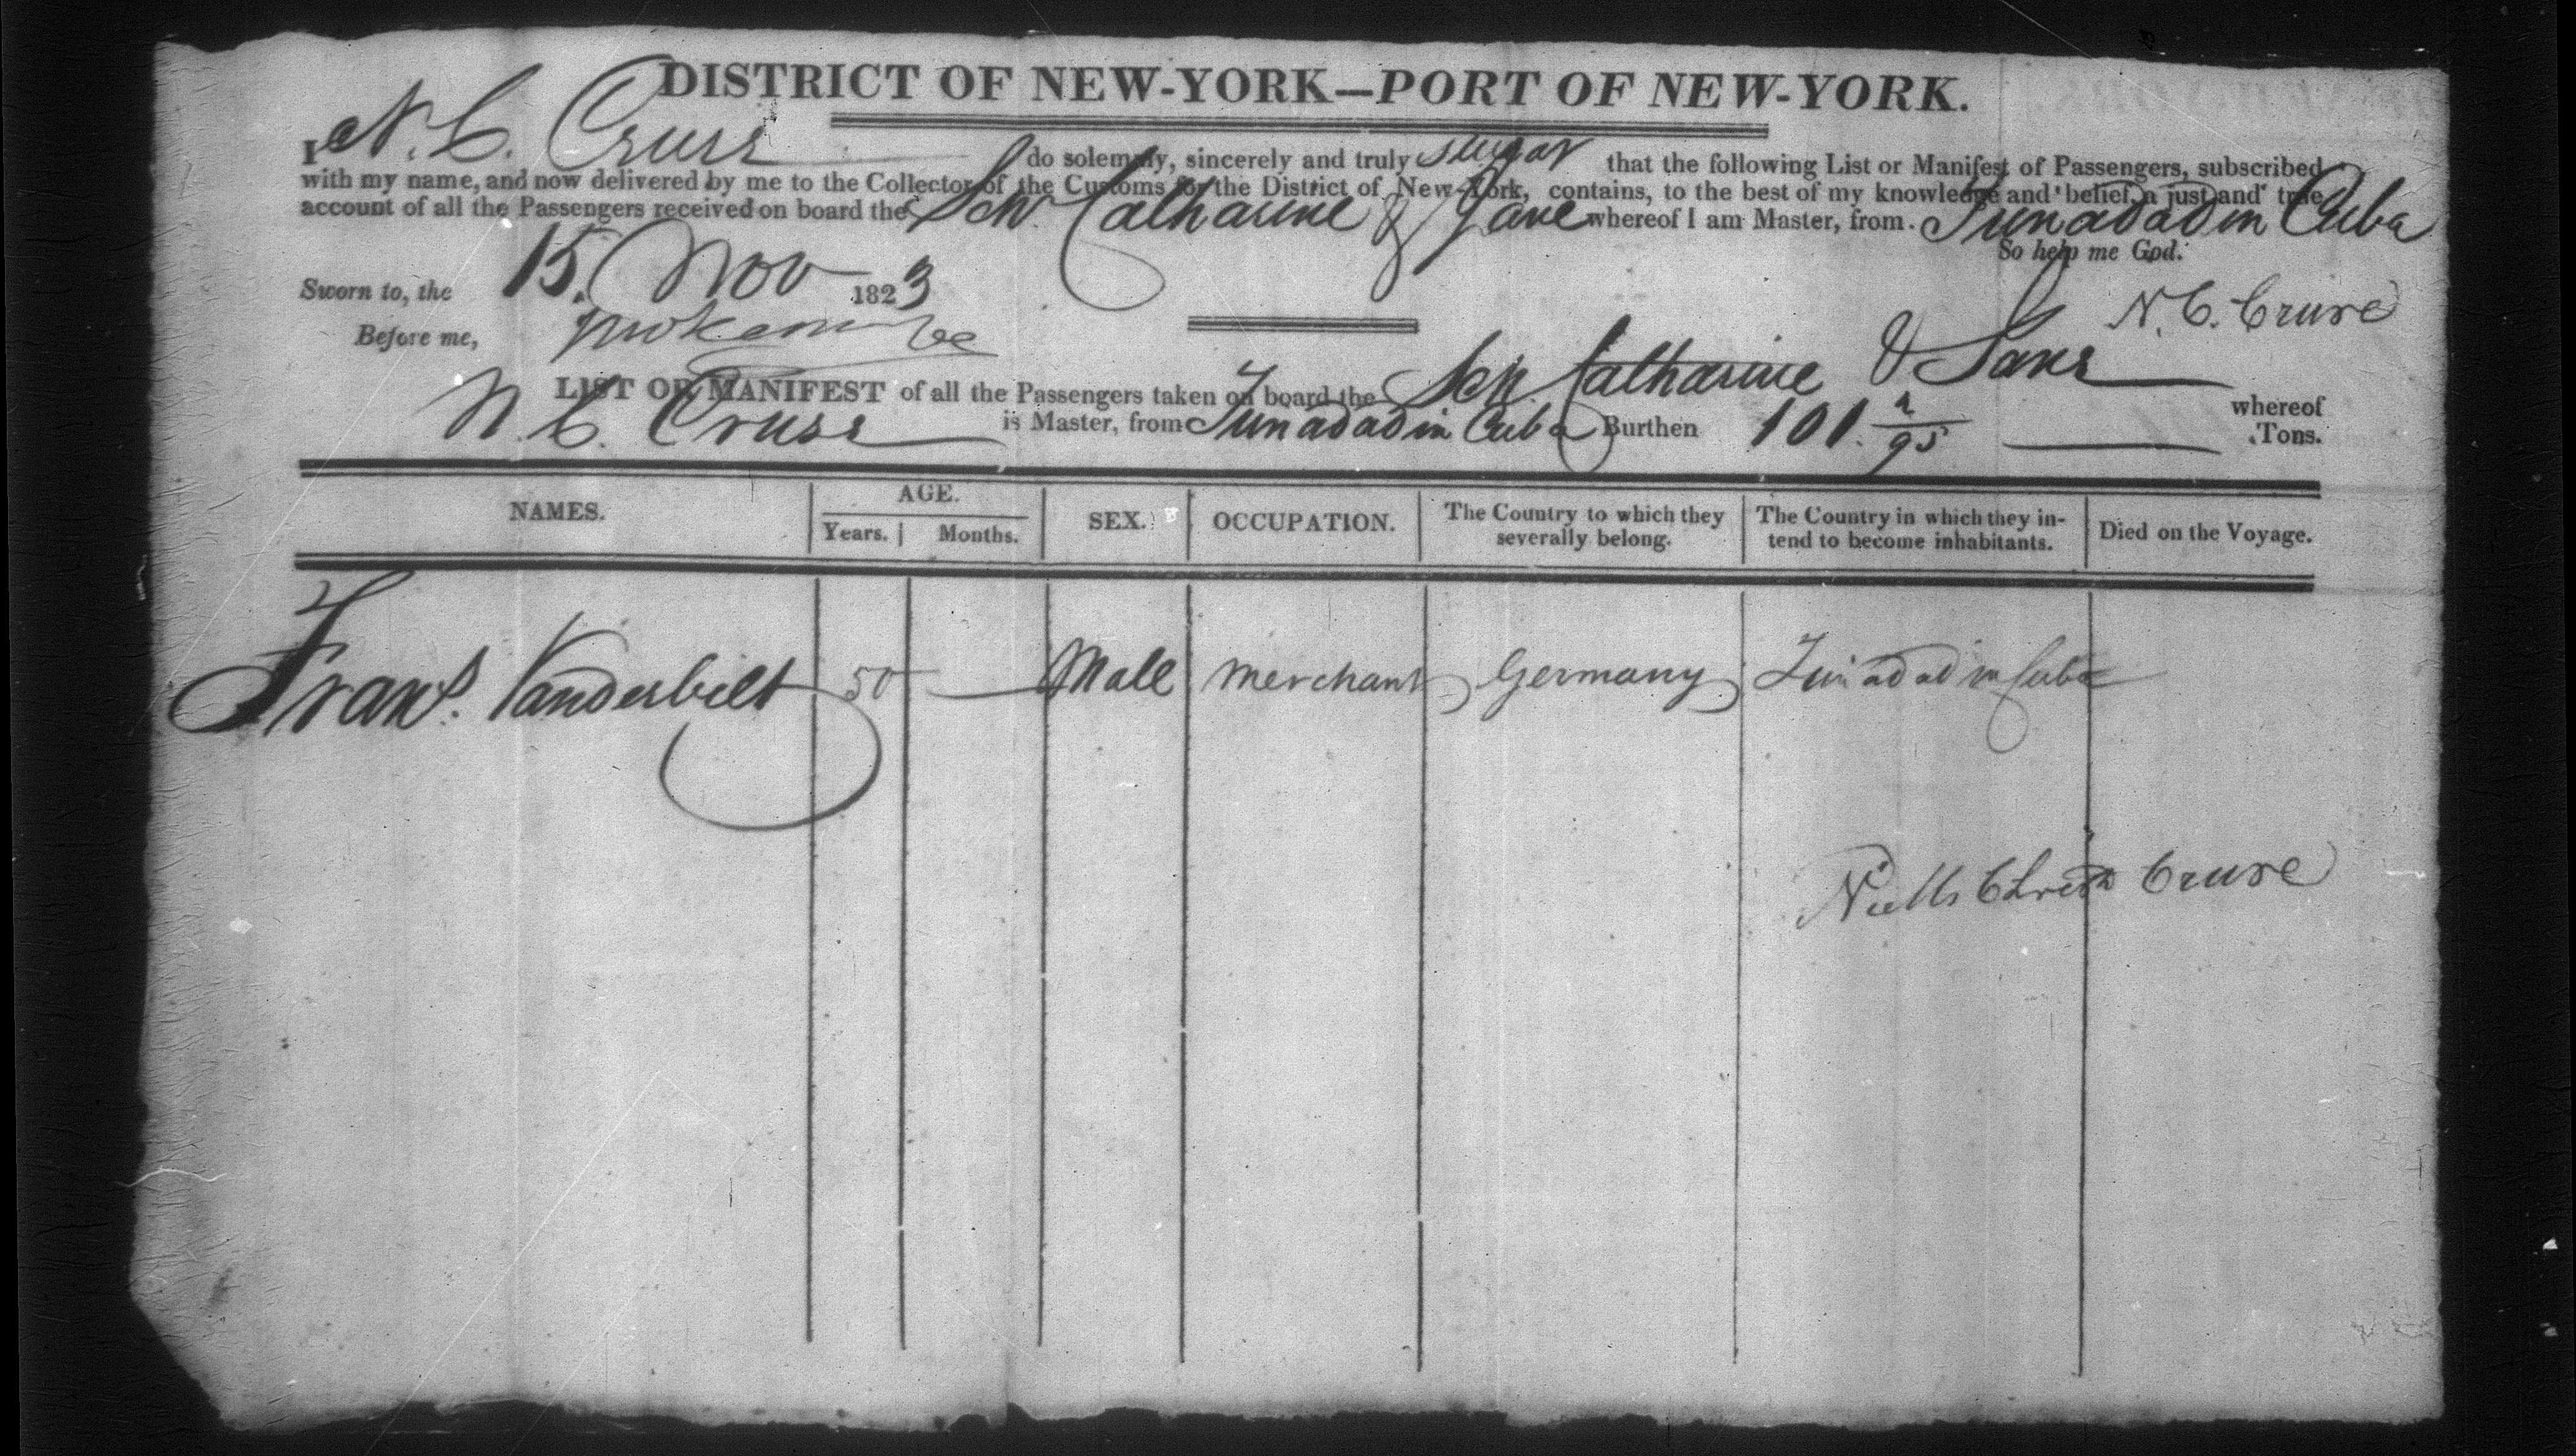 DISTRICT OF NEW-YORK—PORT OF NEW-YORK.
I N. C. Cruse do solemnly, sincerely and truly swear that the following List or Manifest of Passengers, subscribed
with my name, and now delivered by me to the Collector of the Customs for the District of New-York, contains, to the best of my knowledge and belief, a just and true
account of all the Passengers received on board the Schr. Catharine & Jane whereof I am Master, from Trinadad in Cuba
So help me God.
Sworn to, the 15. Nov 1823
N. C. Cruse
Before me,
LIST OR MANIFEST of all the Passengers taken on board the Sch. Catharine & Jane whereof
N. C. Cruse is Master, from Trinadad in Cuba Burthen 101. 2/95 Tons.
NAMES. AGE. Years. Months. SEX. OCCUPATION. The Country to which they severally belong. The Country in which they intend to become inhabitants. Died on the Voyage.
Frans. Vanderbilt 50 Male Merchant Germany Trinadad in Cuba
Niells Christn Cruse